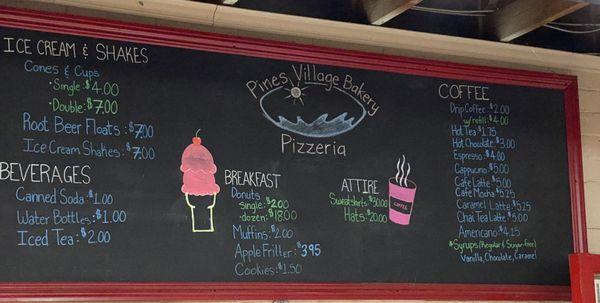 ICE CREAM & SHAKES
Cones & Cups
• Single: $4.00
• Double: $7.00
Root Beer Floats: $7.00
Ice Cream Shakes: $7.00
BEVERAGES
Canned Soda: $1.00
Water Bottles: $1.00
Iced Tea: $2.00
Pines Village Bakery
Pizzeria
BREAKFAST
Donuts
single: $2.00
• dozen: $18.00
Muffins: $2.00
Apple Fritter: $3.95
Cookies: $1.50
ATTIRE
Sweatshirts: $30.00
Hats: $20.00
COFFEE
COFFEE
Drip Coffee: $2.00
w/refill: $4.00
Hot Tea: $1.75
Hot Chocolate: $3.00
Espresso: $4.00
Cappucino: $5.00
Cafe Latte: $5.00
Cafe Mocha: $5.25
Caramel Latte: $5.25
Chai Tea Latte: $5.25
Americano: $4.15
*Syrups (Regular & Sugar-free)
Vanilla, Chocolate, Caramel